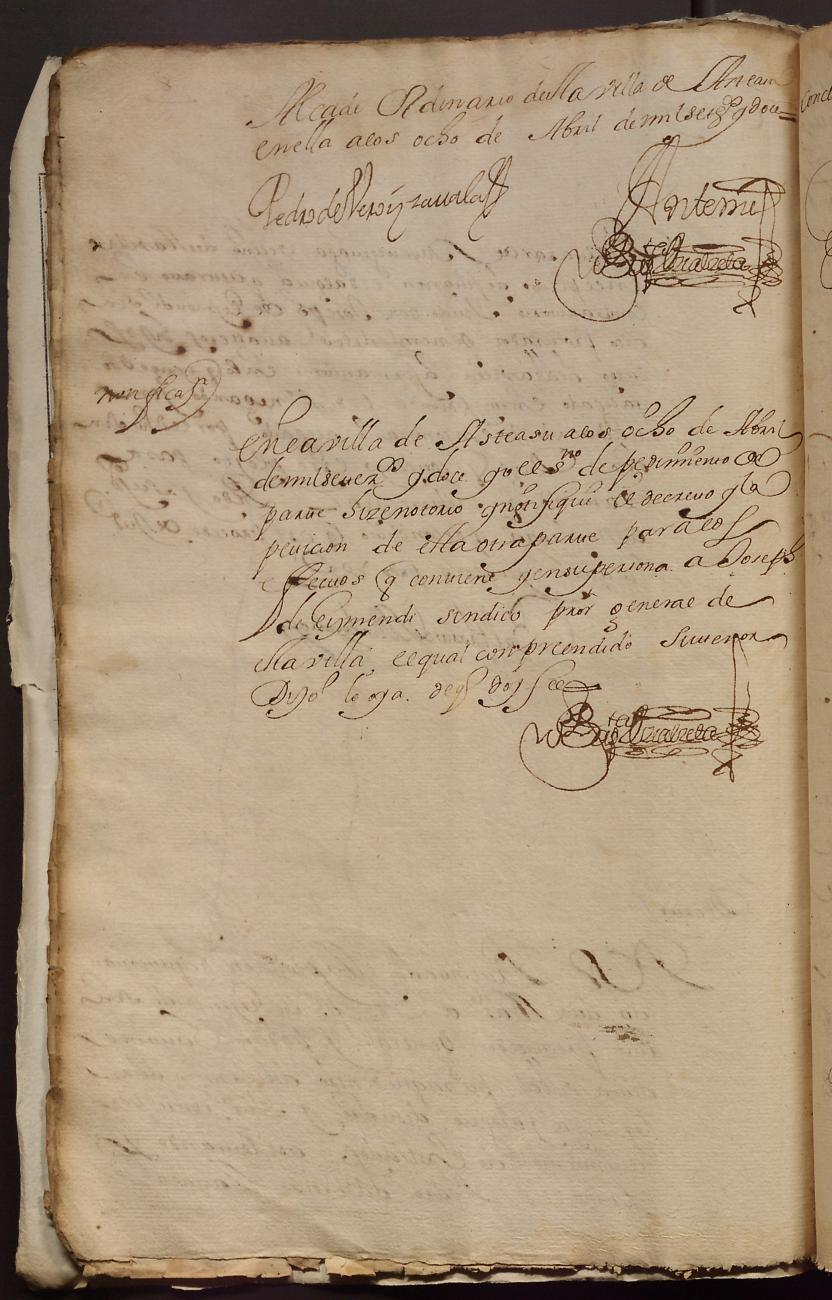 Alcade Ordinario desta villa de Asteasu
en ella a los ocho de Abril de mil setez.os y doce =
Pedro de
Ante mi
Bap.ta de
notificaz.n
En la villa de Asteasu a los ocho de Abril
de mil setez.os y doce yo el s.no de pedimiento de
parte hize notorio y notifique el decreto y la
peticion de esta otra parte para los
efectos q conviene y en su persona a Joseph
de Eymendi sindico pror general de
esta villa, el qual comprendido su tenor
Dijo lo oja. de q doy fee
Bap.ta de